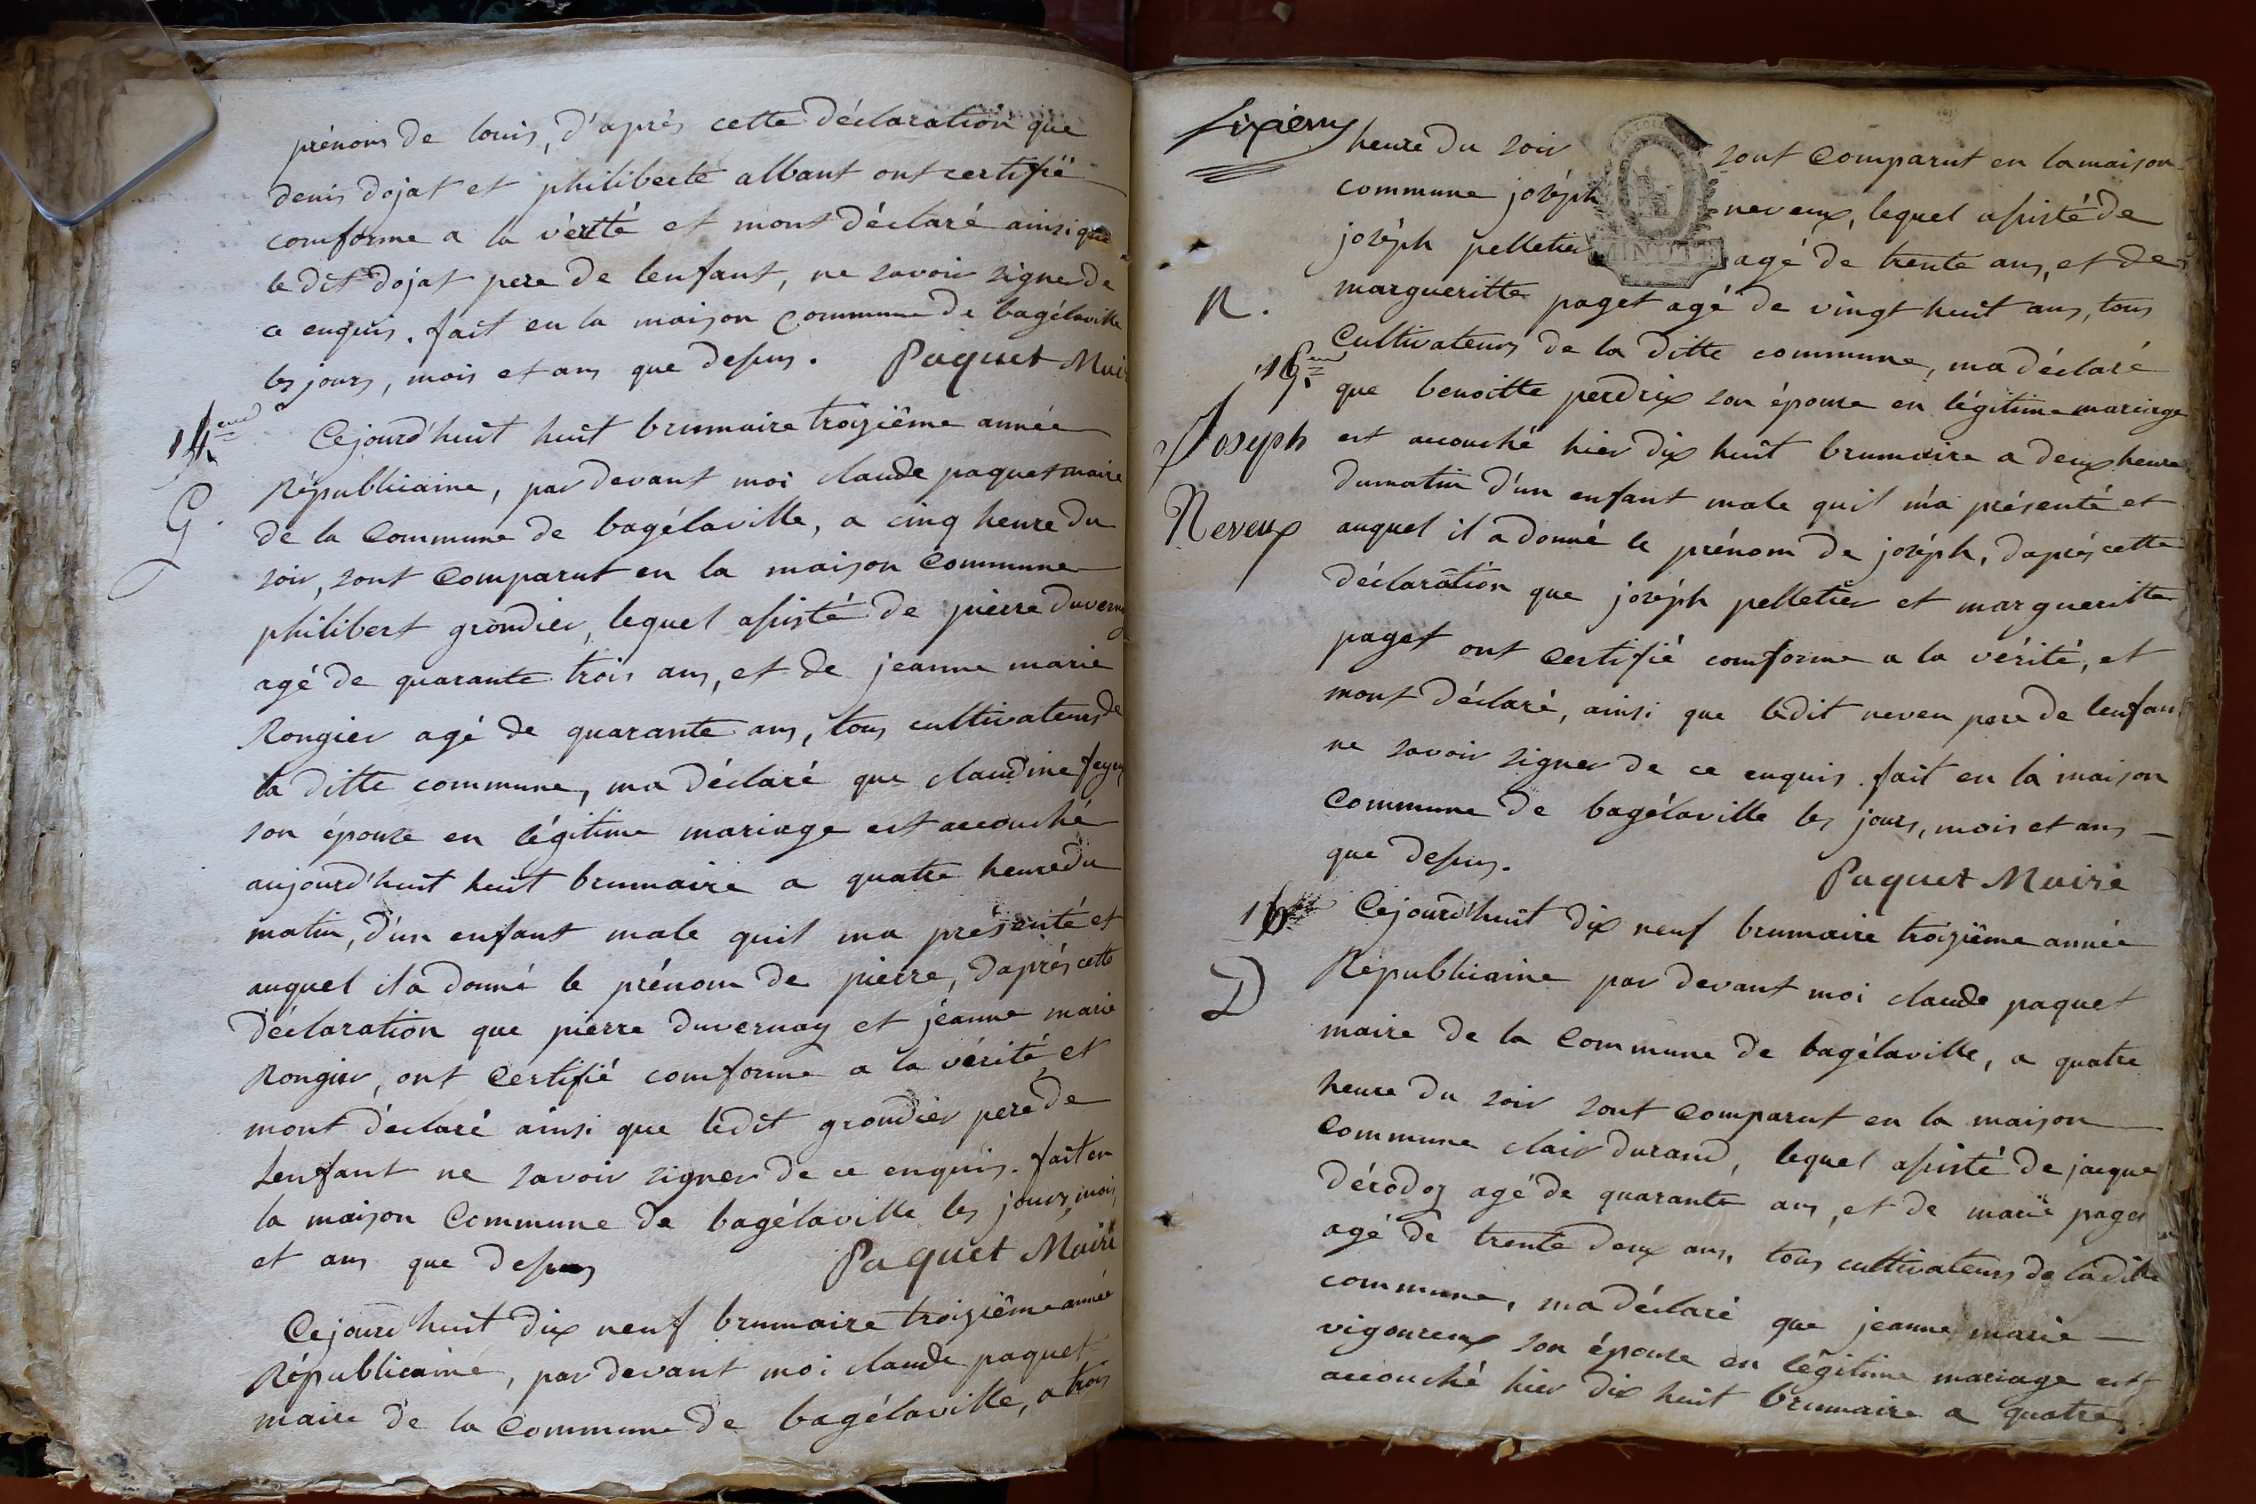 prénom de louis, d'après cette déclaration que
denis dojat et philiberte albant ont certifié
comforme a la vérité et mont déclaré ainsi que
le dit dojat pere de lenfant, ne savoir signer de
ce enquis. fait en la maison commune de bagélaville
les jours, mois et ans que dessus. Paquet Mai
14eme
G
Cejourd'huit huit brumaire troiziême année
Républicaine, par devant moi claude paquet maire
de la Commune de bagélaville, a cinq heure du
soir, sont Comparut en la maison Commune
philibert grondier, lequel assisté de pierre duverny
agé de quarante trois ans, et de jeanne marie
Rongier agé de quarante ans, tous cultivateurs de
la ditte commune, ma déclaré que claudine
son épouse en légitime mariage est accouché
aujourd'huit huit brumaire a quatre heure du
matin, d'un enfant male quil ma présenté et
auquel il a donné le prénom de pierre, daprès cette
déclaration que pierre duvernay et jeanne marie
Rongier, ont Certifié comforme a la vérité et
mont déclaré ainsi que ledit grondier pere de
Lenfant ne savoir signer de ce enquis. fait en
la maison Commune de bagélaville les jours, mois
et ans que dessus Paquet Maire
Cejourd'huit dix neuf brumaire troiziême année
Républicaine, par devant moi claude paquet
maire de la Commune de bagélaville, a trois
sixieme
heure du soir sont Comparut en la maison
commune joséph neveux, lequel assisté de
joséph pelletier agé de trente ans, et de
MINUTE
N.
margueritte paget agé de vingt huit ans, tous
Cultivateurs de la ditte commune, ma déclaré
15eme
que benoitte perdrix son épouse en légitime mariage
Joseph
est accouché hier dix huit brumaire a deux heure
Neveux
du matin d'un enfant male quil m'a présenté et
auquel il a donné le prénom de joséph, daprès cette
déclaration que joséph pelletier et margueritte
paget ont certifié comforme a la vérité, et
mont déclaré, ainsi que ledit neveu pere de lenfant
ne savoir signer de ce enquis. fait en la maison
Commune de bagélaville les jours, mois et ans
que dessus.
Paquet Maire
16
D
Cejourd'huit dix neuf brumaire troiziême année
Républicaine par devant moi claude paquet
maire de la Commune de bagélaville, a quatre
heure du soir sont Comparut en la maison
Commune clair durand, lequel assisté de jacque
dérodoz agé de quarante ans, et de marie paget
agé de trente deux ans, tous cultivateurs de la ditte
commune, ma déclaré que jeanne marie
vigoureux son épouse en légitime mariage est
accouché hier dix huit brumaire a quatre